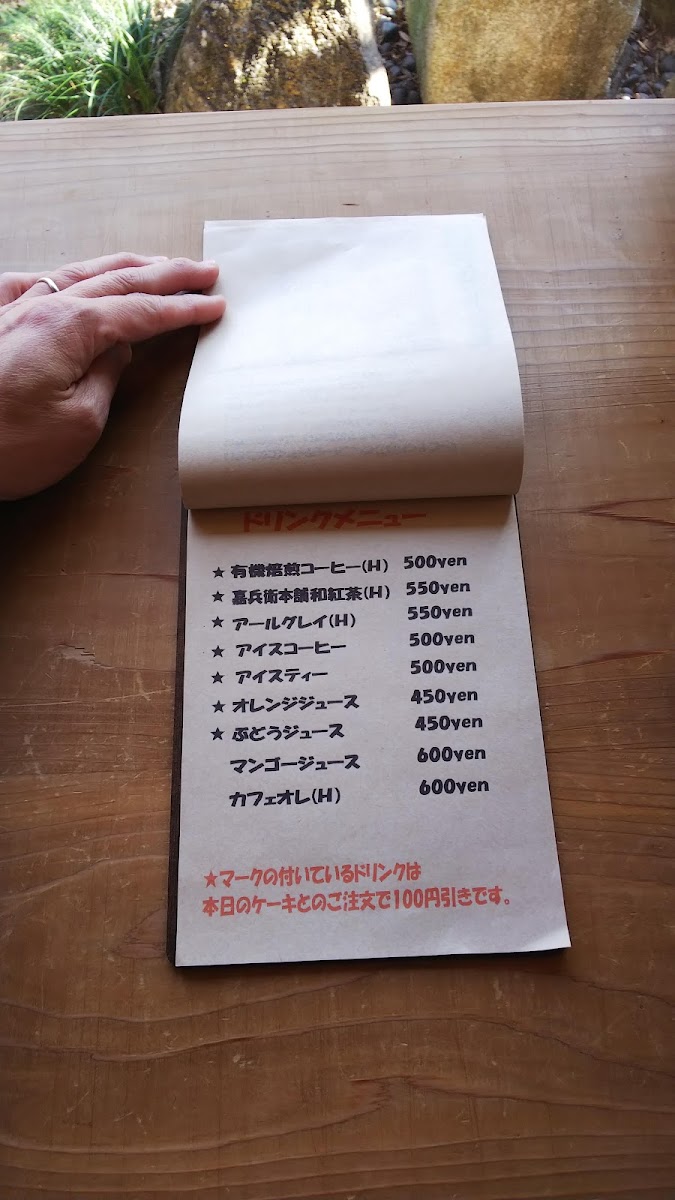 ドリンクメニュー
★ 有機焙煎コーヒー(H) 500yen
★ 嘉兵衛本舗和紅茶(H) 550yen
★ アールグレイ(H) 550yen
★ アイスコーヒー 500yen
★ アイスティー 500yen
★ オレンジジュース 450yen
★ ぶどうジュース 450yen
マンゴージュース 600yen
カフェオレ(H) 600yen
★マークの付いているドリンクは
本日のケーキとのご注文で100円引きです。